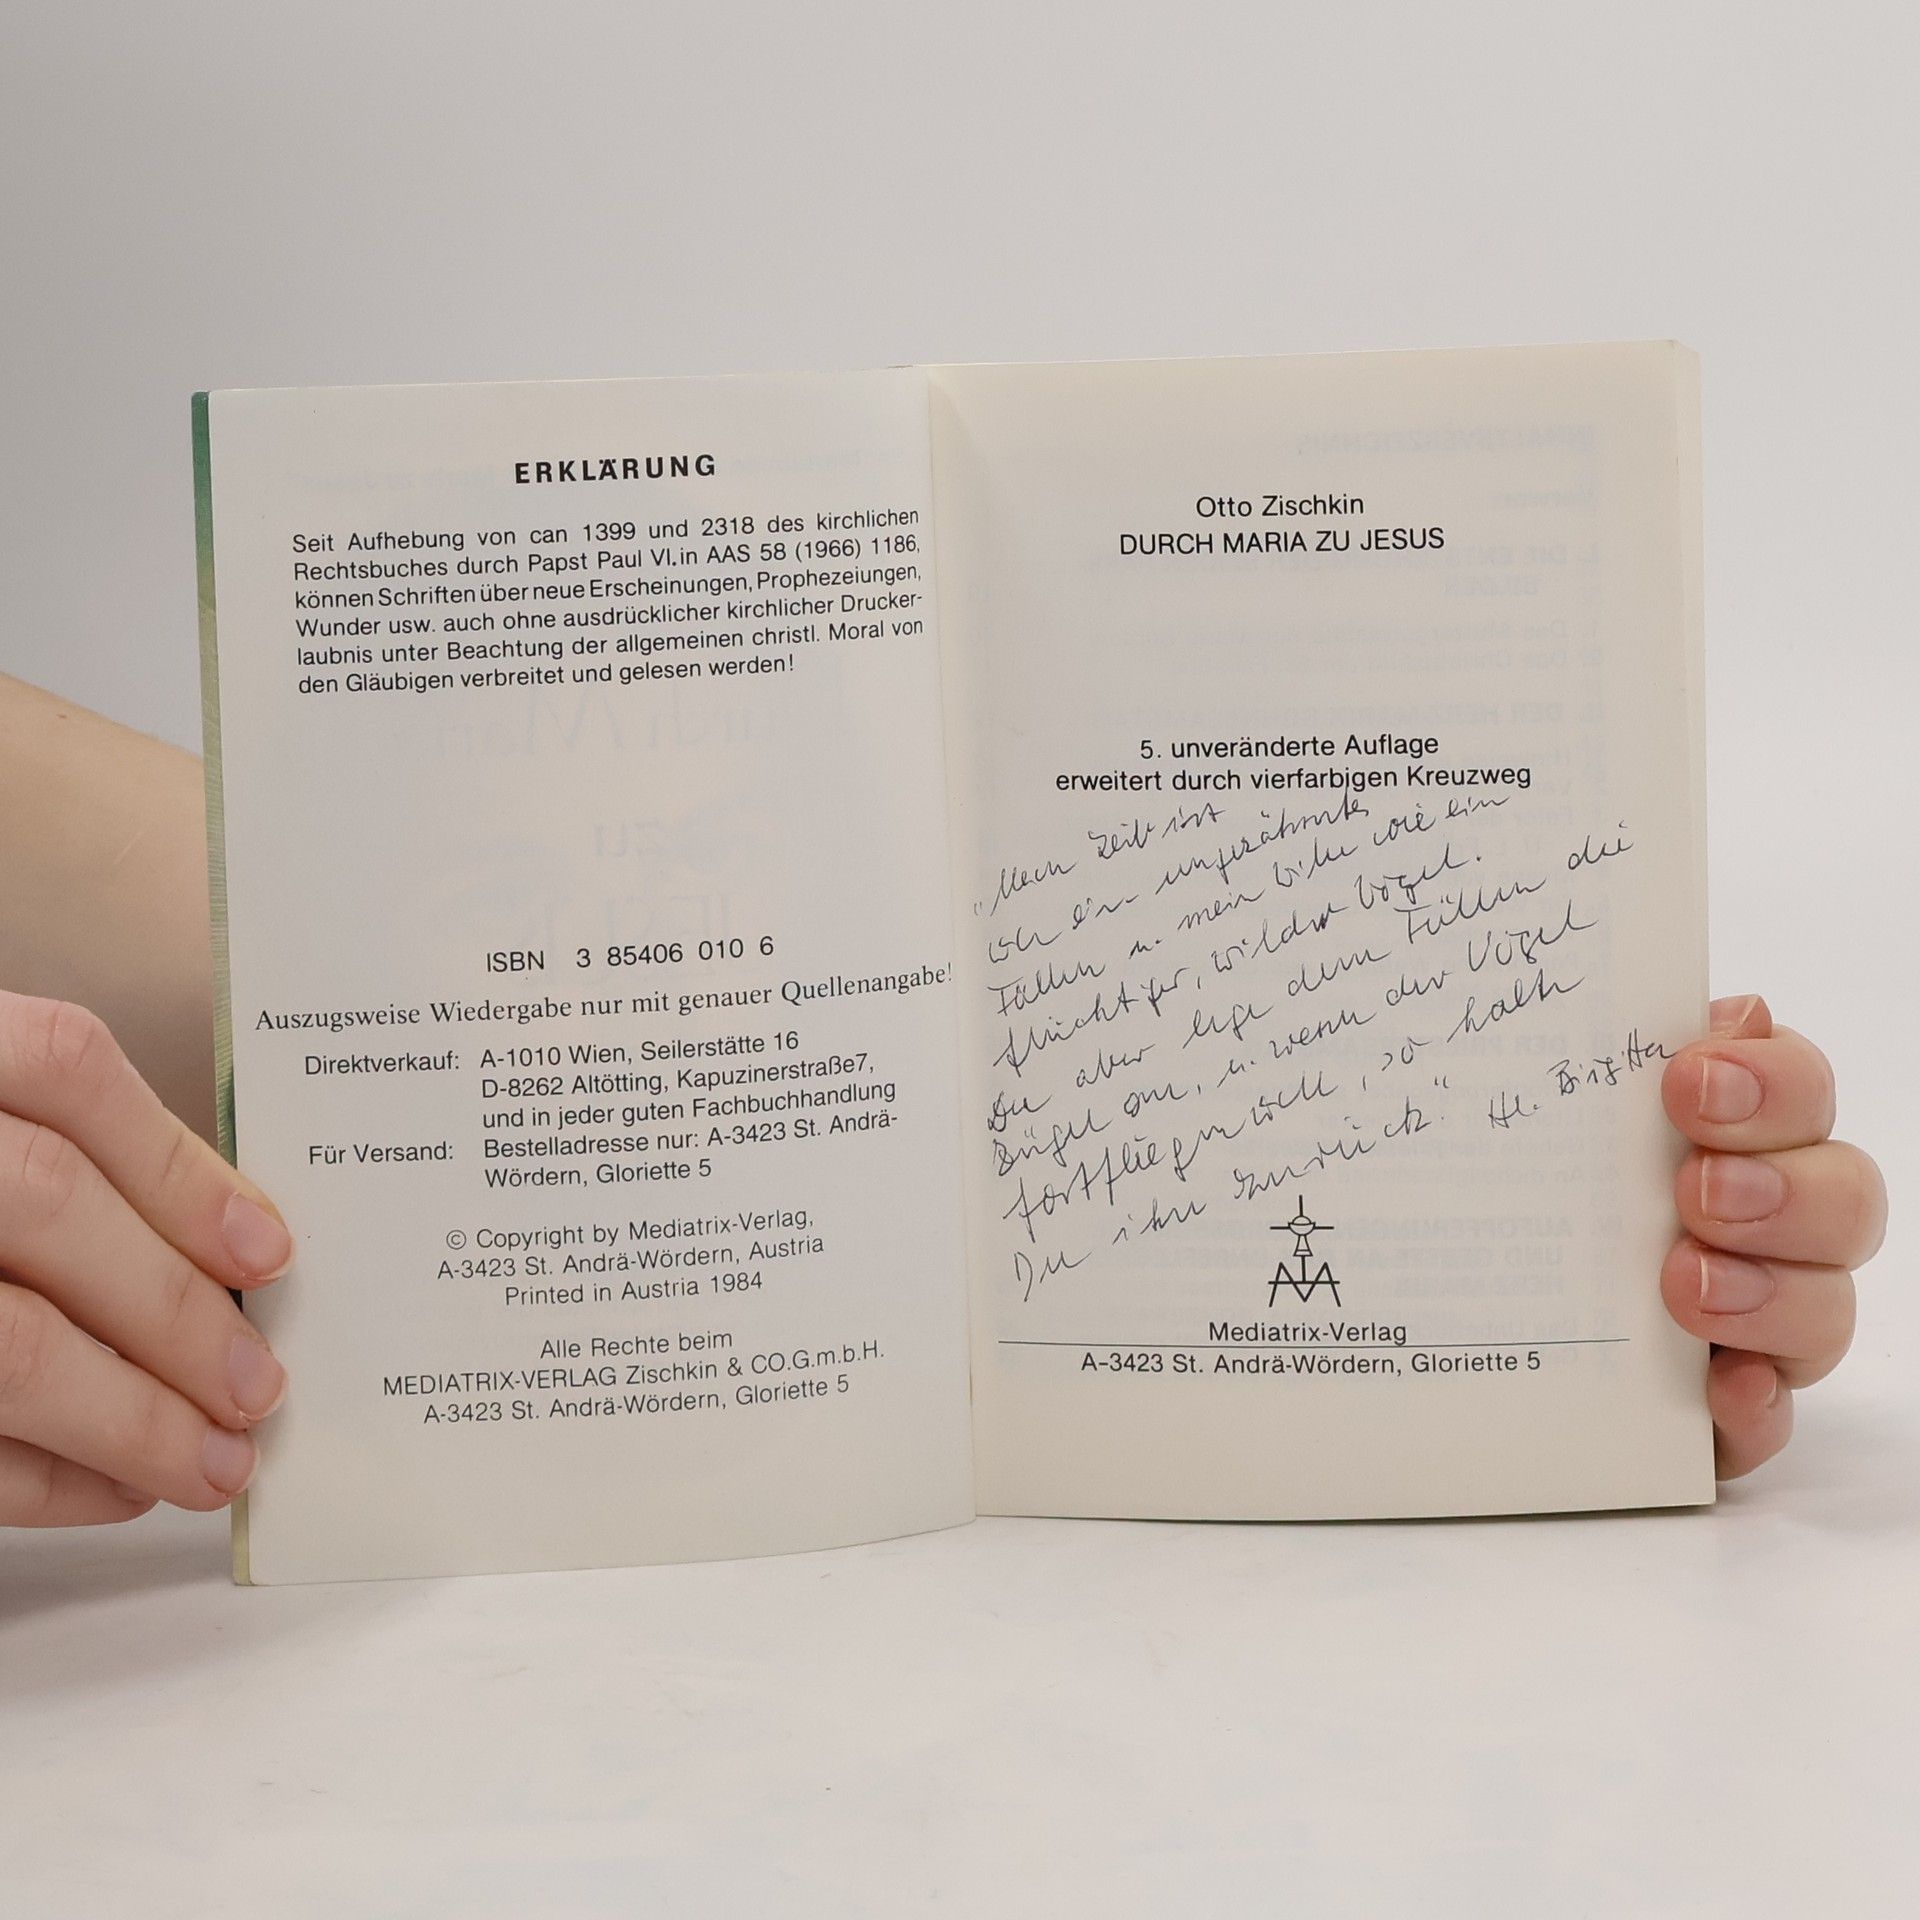 ERKLÄRUNG
Seit Aufhebung von can 1399 und 2318 des kirchlichen
Rechtsbuches durch Papst Paul VI.in AAS 58 (1966) 1186,
können Schriften über neue Erscheinungen, Prophezeiungen,
Wunder usw. auch ohne ausdrücklicher kirchlicher Drucker-
laubnis unter Beachtung der allgemeinen christl. Moral von
den Gläubigen verbreitet und gelesen werden!
ISBN 3 85406 010 6
Auszugsweise Wiedergabe nur mit genauer Quellenangabe!
Direktverkauf: A-1010 Wien, Seilerstätte 16
D-8262 Altötting, Kapuzinerstraße7,
und in jeder guten Fachbuchhandlung
Für Versand: Bestelladresse nur: A-3423 St. Andrä-
Wördern, Gloriette 5
© Copyright by Mediatrix-Verlag,
A-3423 St. Andrä-Wördern, Austria
Printed in Austria 1984
Alle Rechte beim
MEDIATRIX-VERLAG Zischkin & CO.G.m.b.H.
A-3423 St. Andrä-Wördern, Gloriette 5
Otto Zischkin
DURCH MARIA ZU JESUS
5. unveränderte Auflage
erweitert durch vierfarbigen Kreuzweg
ist
wie ein ungezähmtes
Füllen u. mein Wille wie ein
flüchtiger, wilder Vogel.
Du aber lege dem Füllen die
Zügel an, u. wenn der Vogel
fortfliegen will, so halte
Du ihn zurück." Hl. Birgitta
Mediatrix-Verlag
A-3423 St. Andrä-Wördern, Gloriette 5